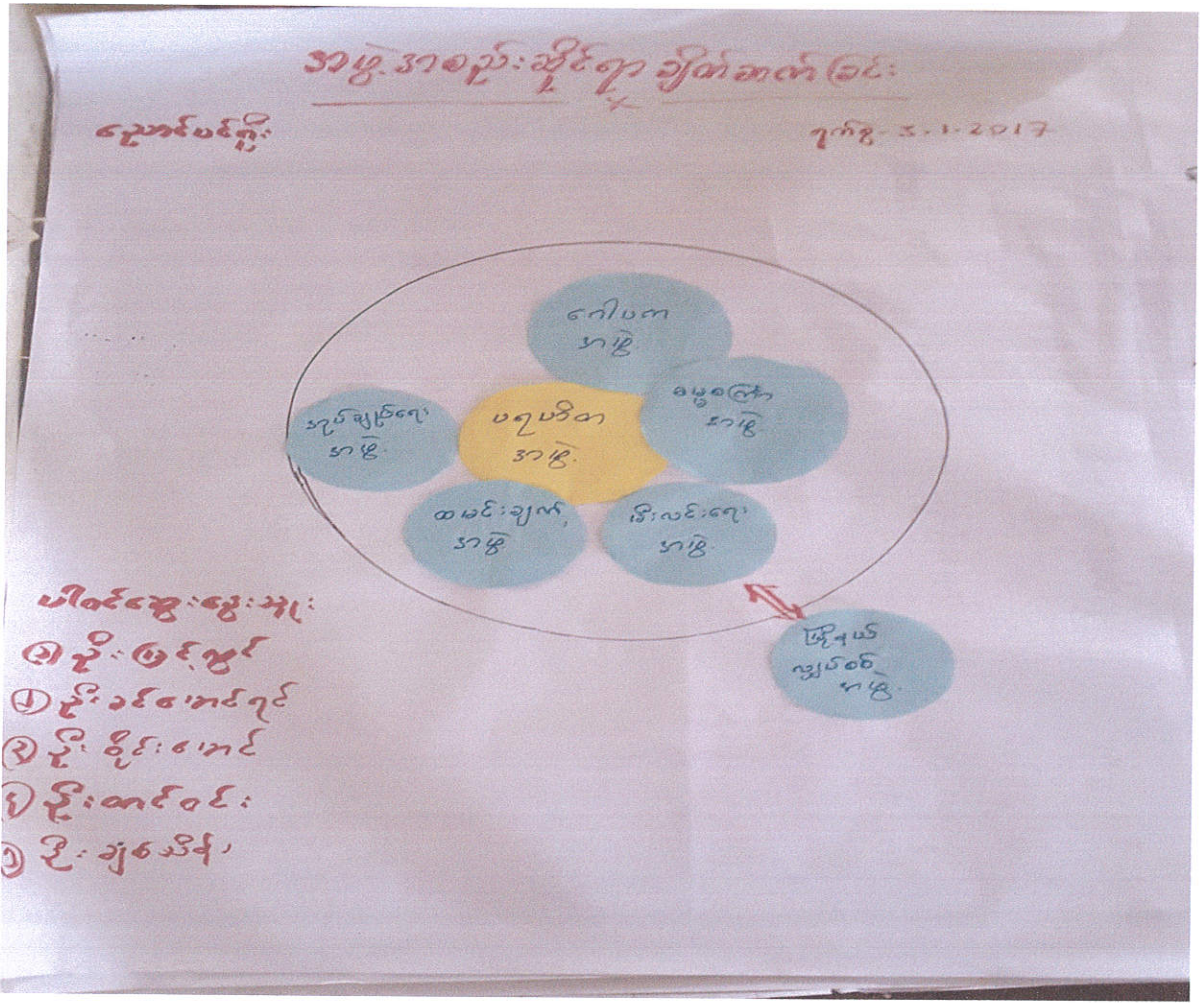 အဖွဲ့အစည်းဆိုင်ရာ ချိတ်ဆက်ခြင်း
ညောင်ပင်ကြီး
ရက်စွဲ - 3.1.2017
ဂေါပက
အဖွဲ့
ဓမ္မစကြာ
အဖွဲ့
ပရဟိတ
အဖွဲ့
အုပ်ချုပ်ရေး
အဖွဲ့
ထမင်းချက်
အဖွဲ့
မီးလင်းရေး
အဖွဲ့
မြို့နယ်
လျှပ်စစ်
အဖွဲ့
ပါဝင်ဆွေးနွေးသူ
၁ ဦးမြင့်လွင်
၂ ဦးခင်မောင်ရင်
၃ ဦးစိုင်းမောင်
၄ ဦးတင်ဝင်း
၅